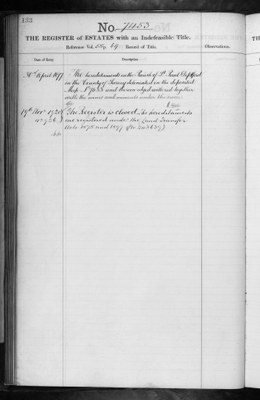 133
No. 7483
THE REGISTER of ESTATES with an Indefeasible Title.
Reference Vol. 69 Record of Title.
Observations.
Date of Entry.
Description.
April 1877
The hereditaments in the Parish of St. Paul Deptford
in the County of Surrey delineated on the deposited
Map and thereon edged with red together
with the mines and minerals under the same
19th Nov. 1920
The Register is closed. The hereditaments
are registered under the Land Transfer
Acts 1875 and 1897